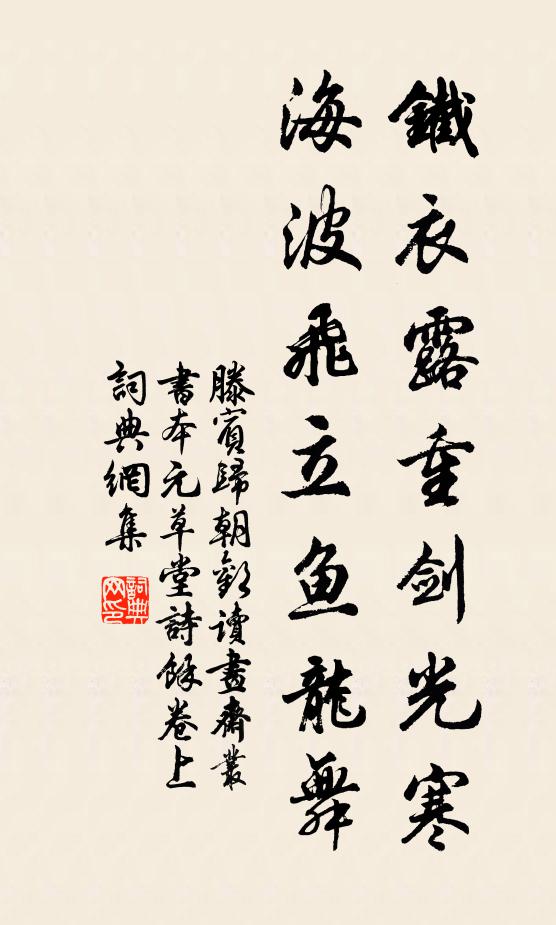 鐵衣露重劍光寒
海波飛立鱼龍舞
滕賓歸朝歡讀畫齋叢
書本元草堂詩餘卷上
詞典網集
詞典
网印